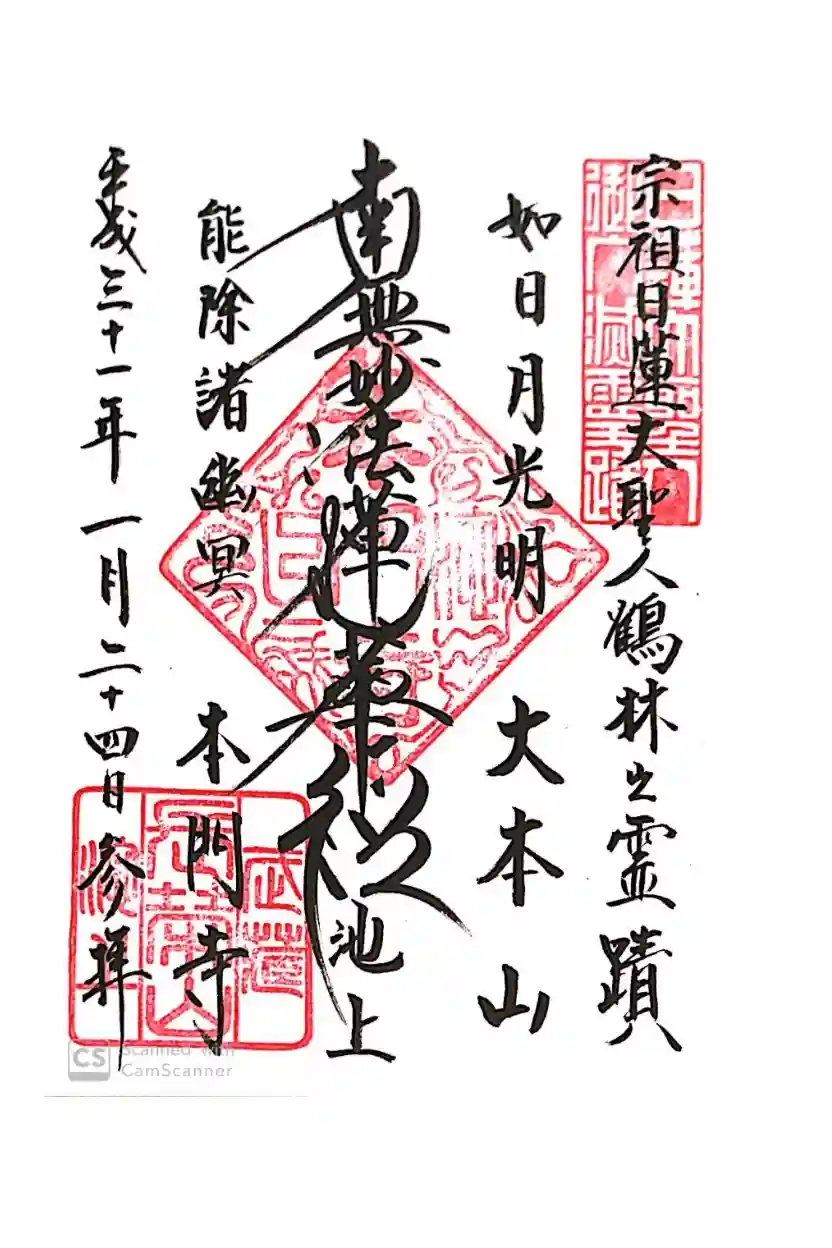 宗祖日蓮大聖人鶴林之霊蹟
如日月光明
大本山
南無妙法蓮華経
池上
能除諸幽冥
本門寺
平成三十一年一月二十四日参拝
CS Scanned with
CamScanner